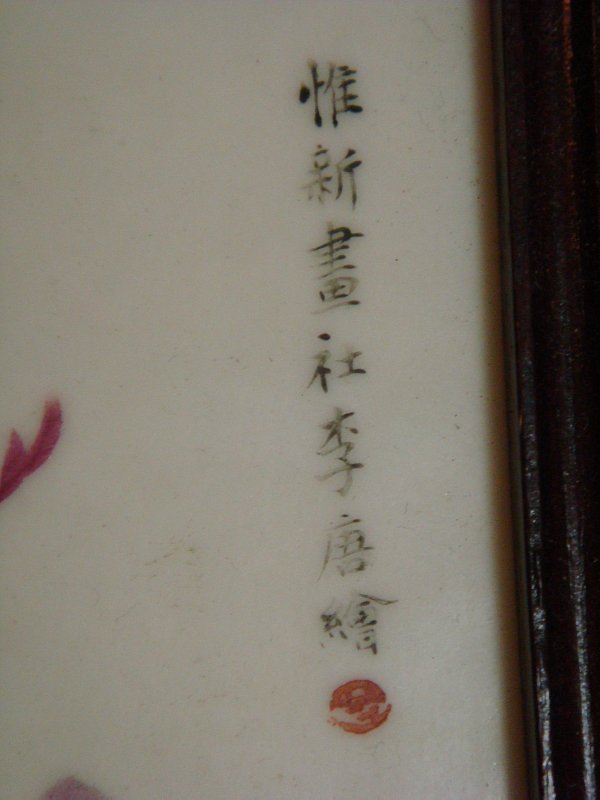 惟新畫社李唐繪